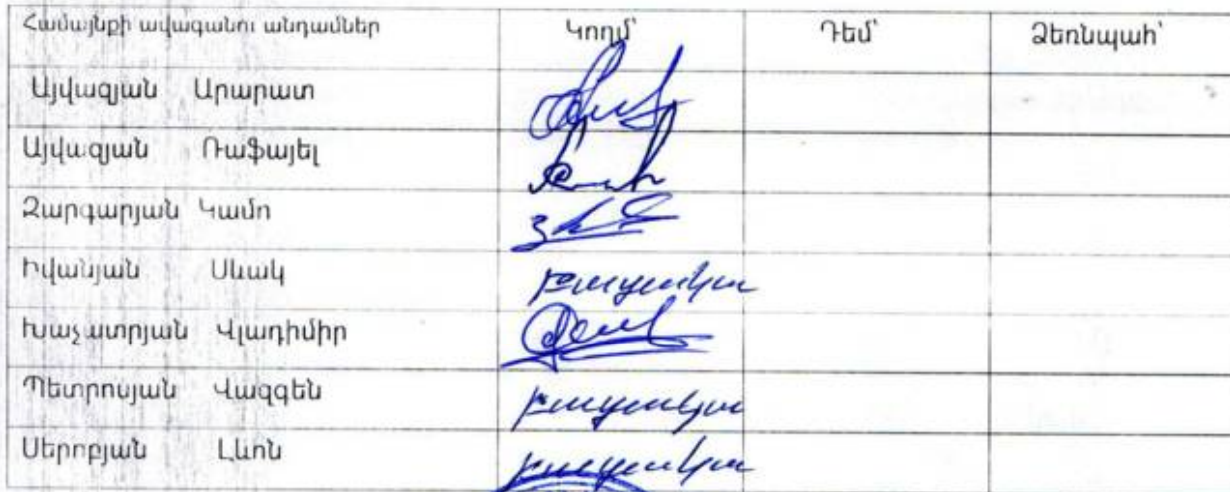 Համայնքի ավագանու անդամներ Կողմ՝ Դեմ՝ Ձեռնպահ՝
Այվազյան Արարատ
Այվազյան Ռաֆայել
Զարգարյան Կամո
Իվանյան Սևակ բացակա
Խաչատրյան Վլադիմիր
Պետրոսյան Վազգեն բացակա
Սերոբյան Լևոն բացակա